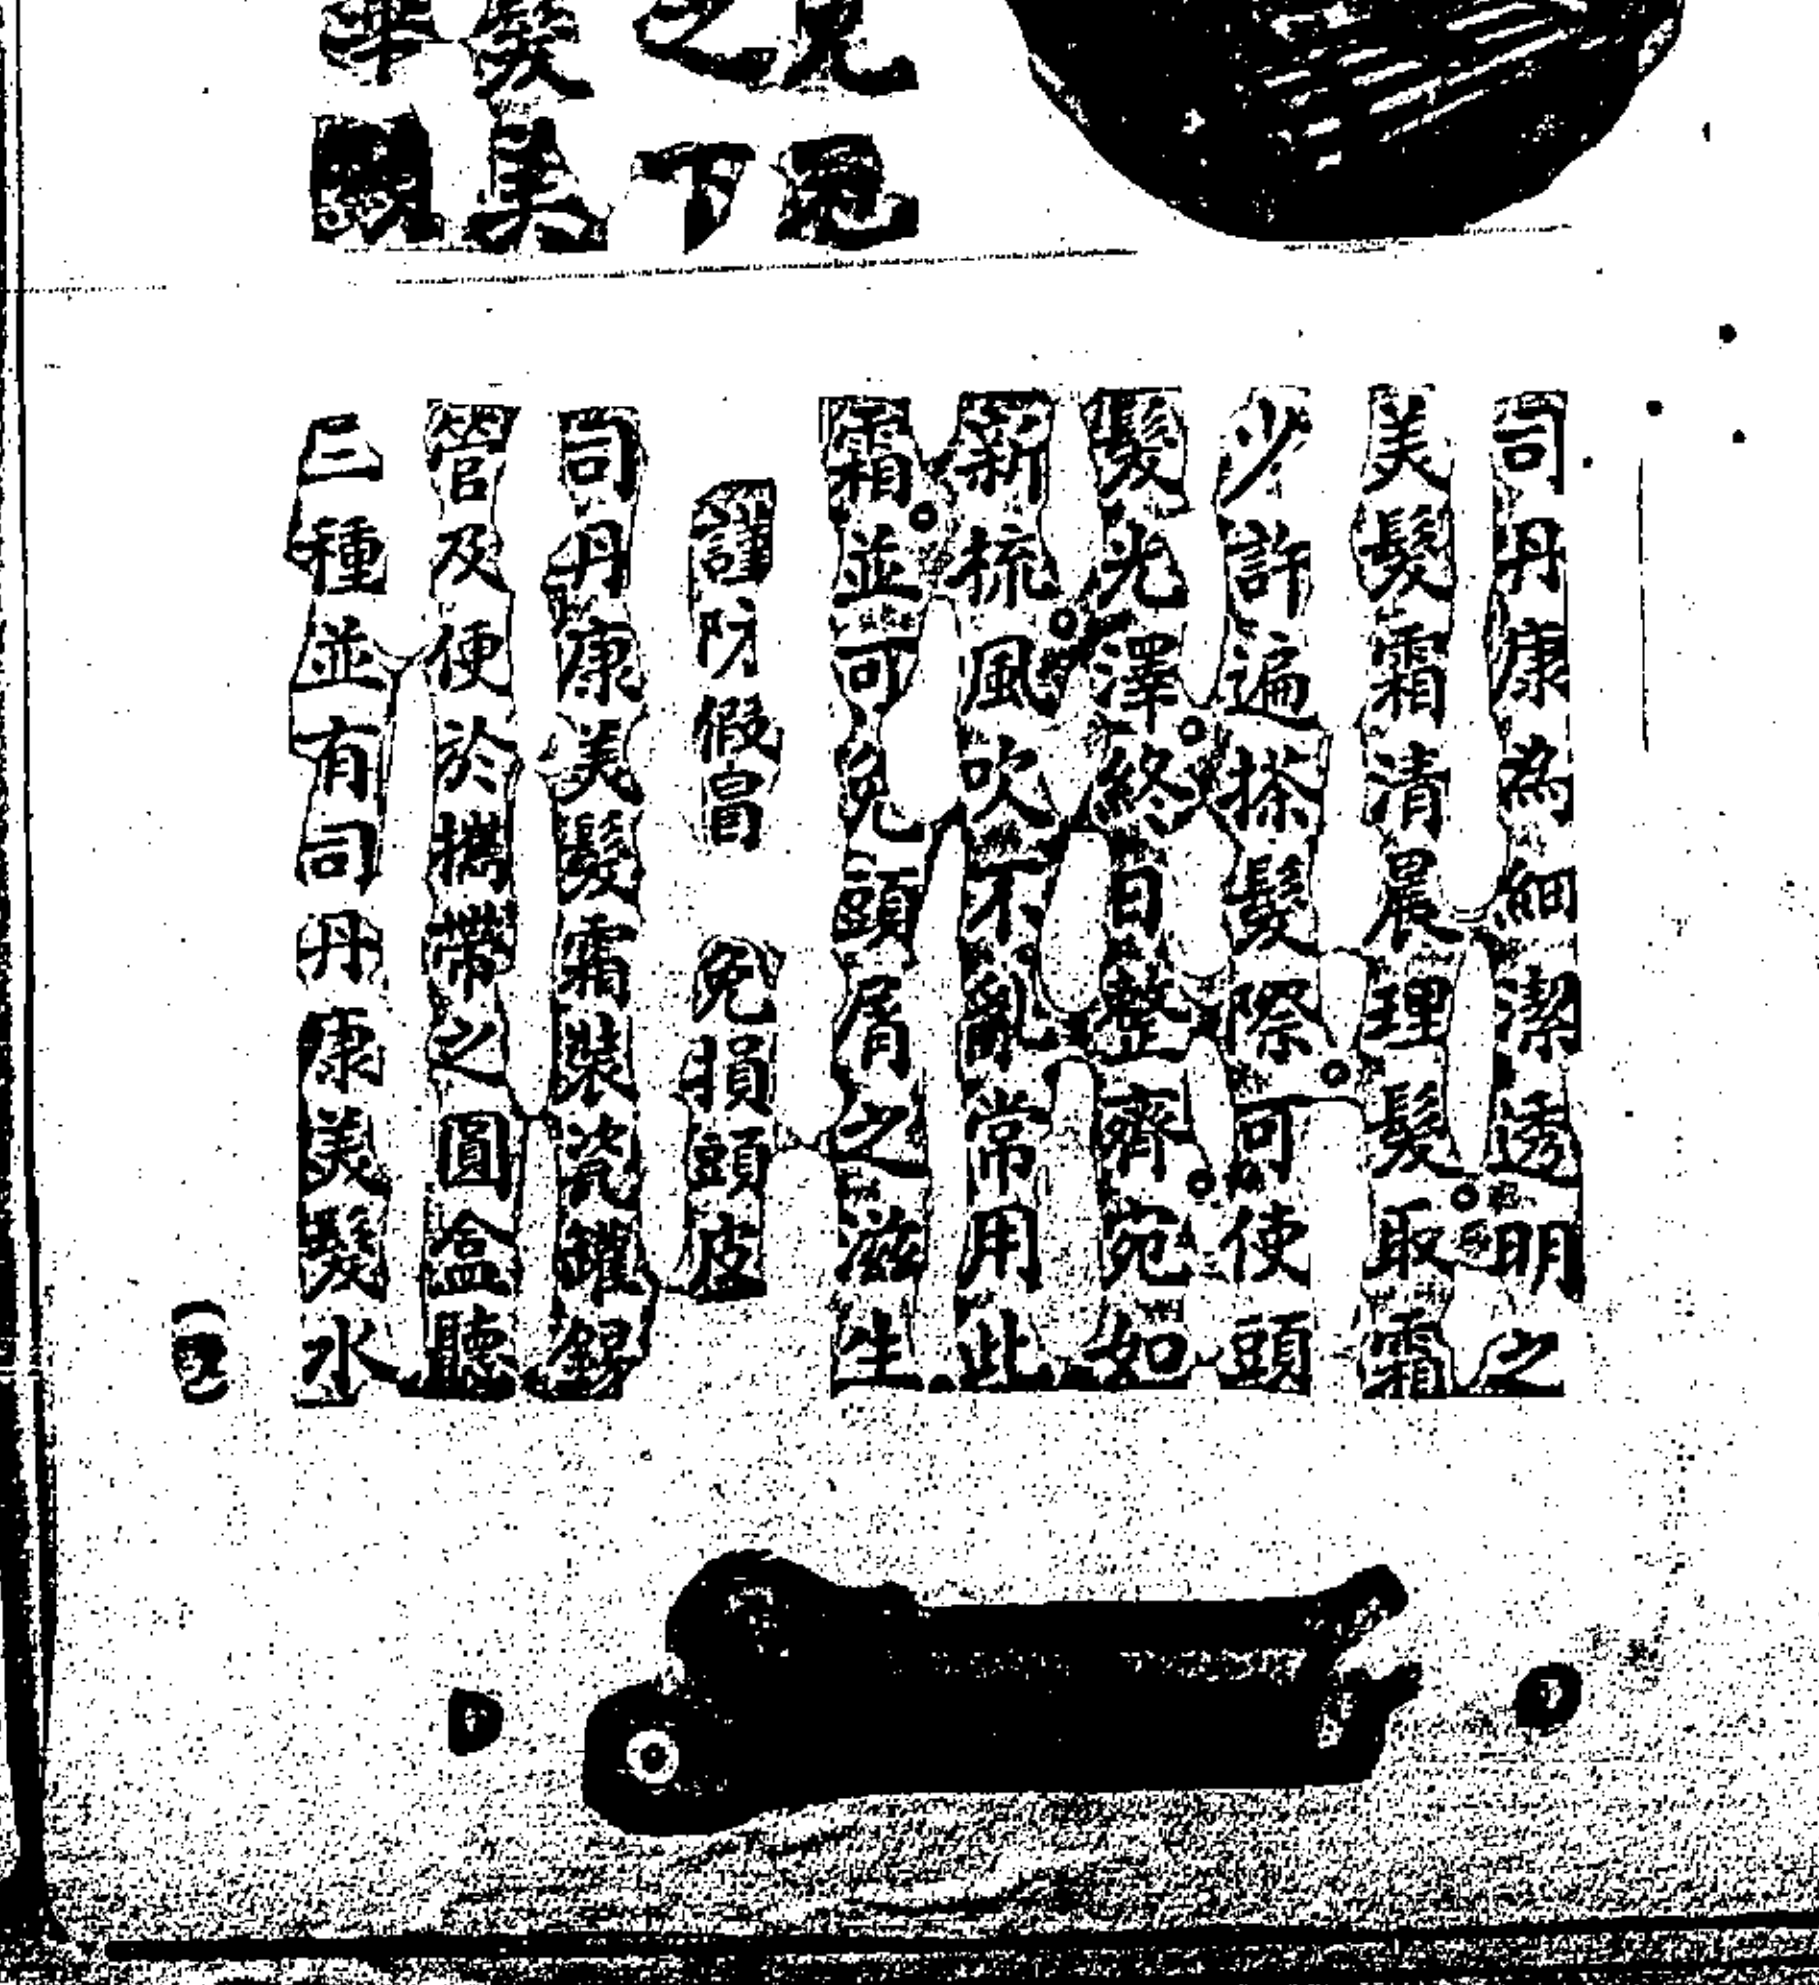 見冠
之下
髮美
司丹康為細潔透明之
美髮霜清晨理髮取霜
少許遍搽髮際可使頭
髮光澤終日整齊宛如
新梳風吹不亂常用此
霜並可免頭屑之滋生
謹防假冒 免損頭皮
司丹康美髮霜裝瓷罐錫
管及便於攜帶之圓盒聽
三種並有司丹康美髮水